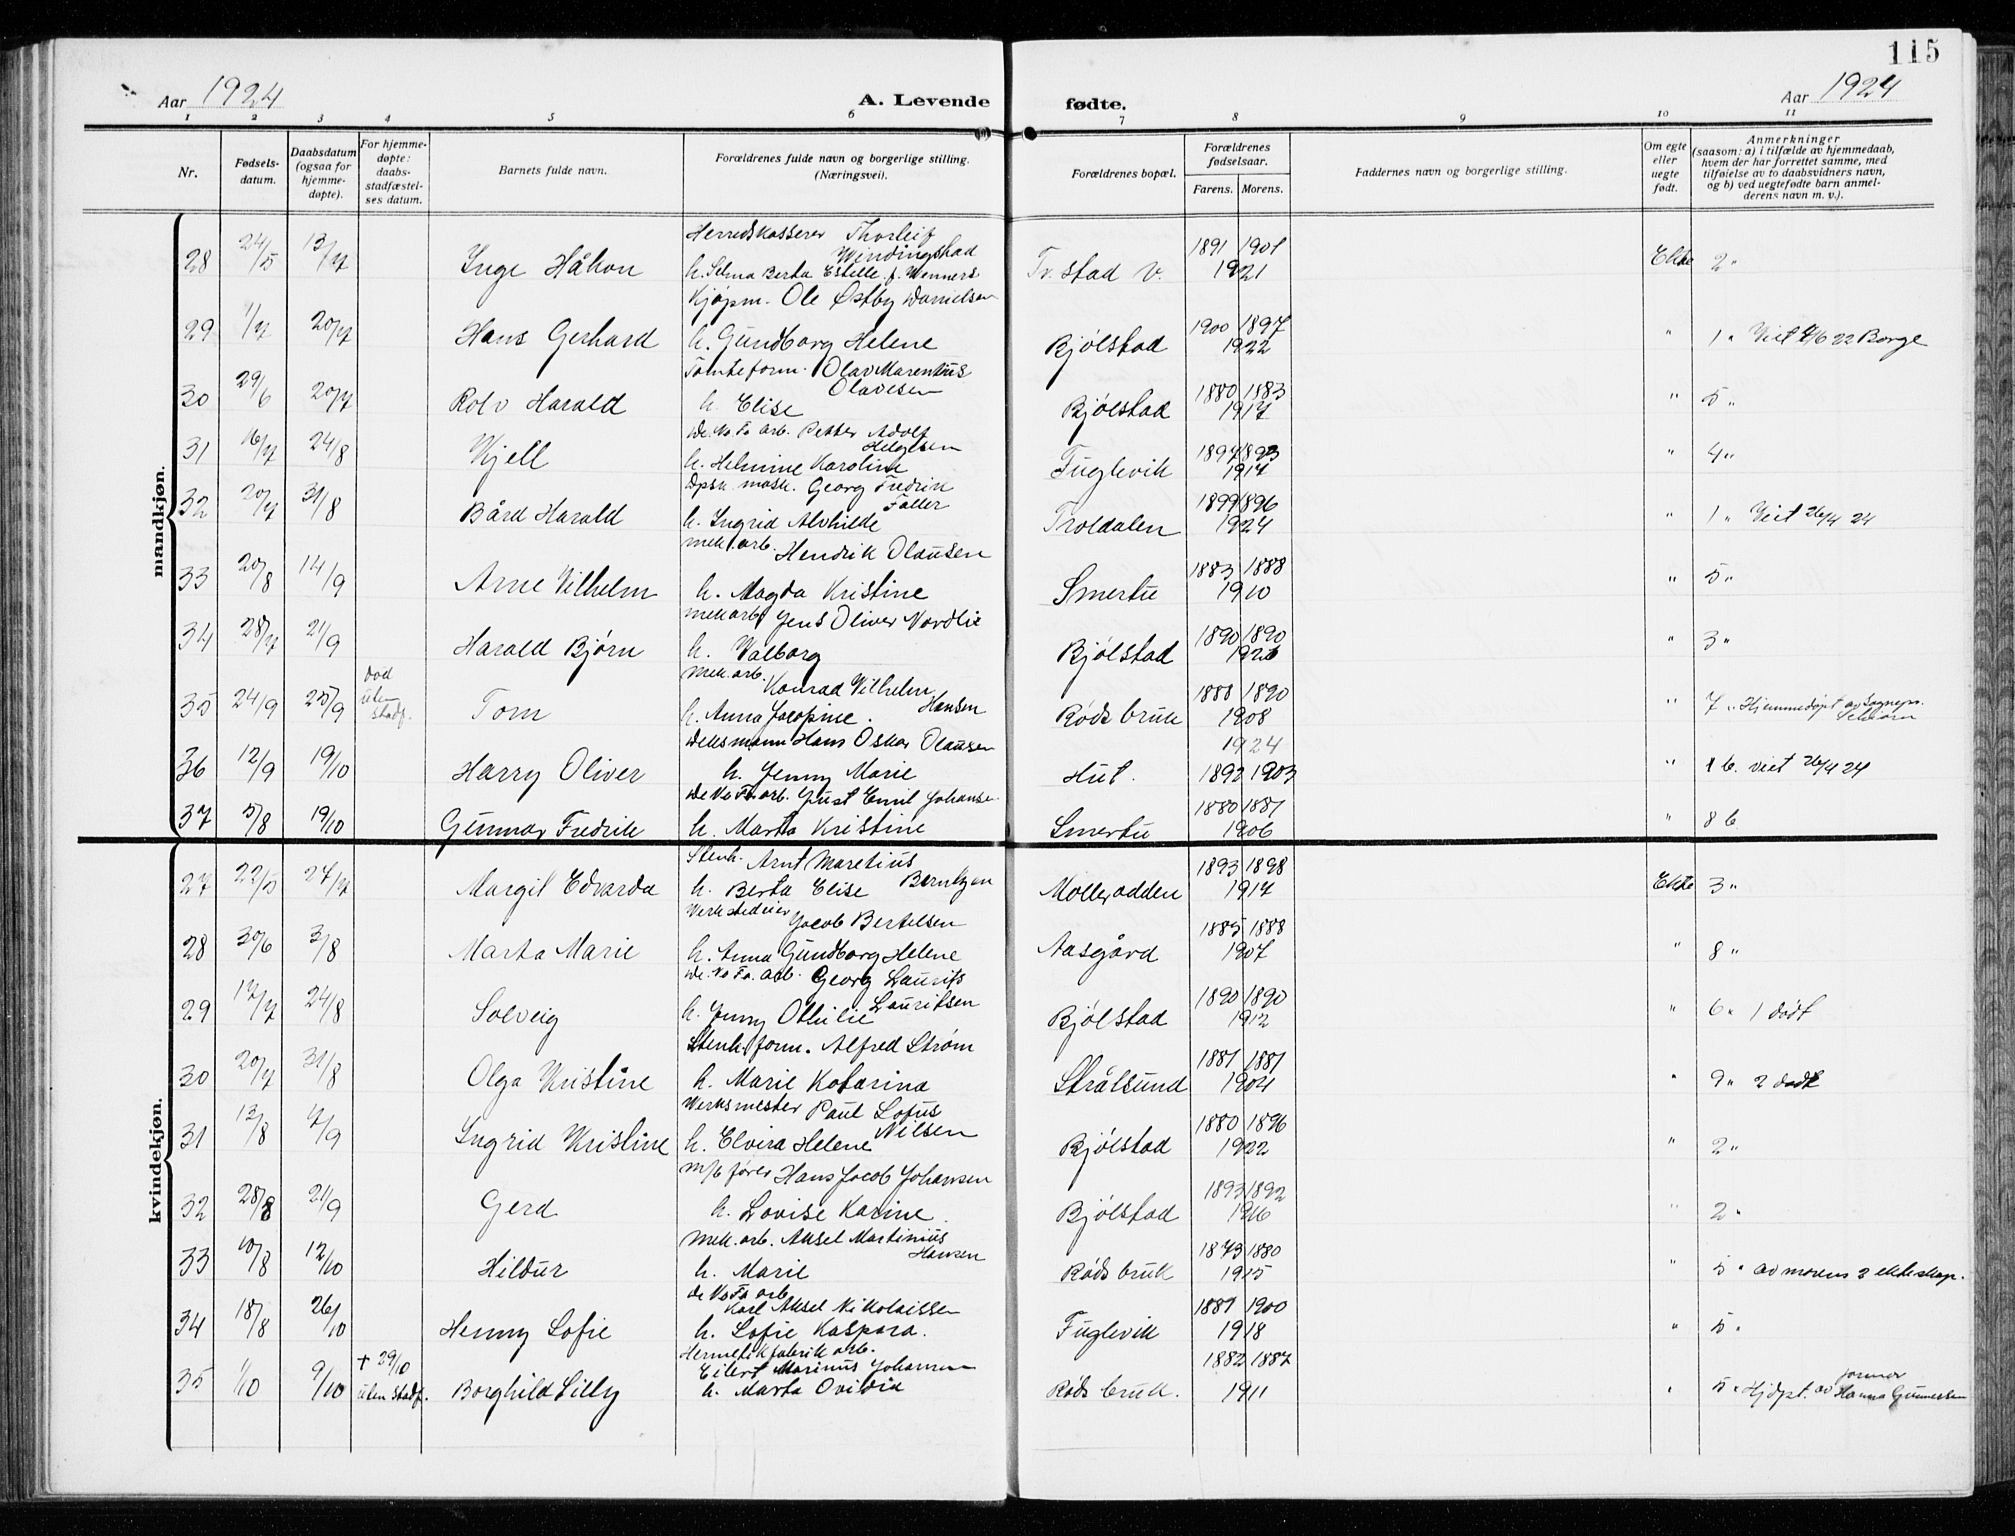 115
Aar 1924
A. Levende
fødte.
Aar 1924
1 2 3 4 5 6 7 8 9 10 11
Nr.
Fødsels-
datum.
Daabsdatum
(ogsaa for
hjemme-
døpte).
For hjemme-
døpte:
daabs-
stadfæstel-
ses datum.
Barnets fulde navn.
Forældrenes fulde navn og borgerlige stilling.
(Næringsvei).
Forældrenes bopæl.
Forældrenes
fødselsaar.
Farens. Morens.
Faddernes navn og borgerlige stilling.
Om egte
eller
uegte
født.
Anmerkninger
(saasom: a) i tilfælde av hjemmedaab,
hvem der har forrettet samme, med
tilføielse av to daabsvidners navn,
og b) ved uegtefødte barn anmel-
derens navn m. v.).
mandkjøn.
Herredskasserer Thorleif
Windingstad
28 24/5 13/7 Inge Håkon h. Selma Berta Estelle f. Wenners. Tr. stad v. 1891 1901 1921 Ekte 2 "
Kjøpm. Ole Østby Danielsen
29 1/7 20/7 Hans Gerhard h. Gundborg Helene Bjølstad 1900 1897 1922 " 1 " Viet 4/6 22 Borge
Tomteform. Olav Marentius
Olavesen
30 29/6 20/7 Rolv Harald h. Elise Bjølstad 1880 1883 1917 " 5 "
De No Fa arb. Petter Adolf
Helgesen
31 16/7 24/8 Kjell h. Helmine Karoline Fuglevik 1894 1893 1917 " 4 "
Dpsk. mask. Georg Fredrik
Faller
32 20/7 31/8 Bård Harald h. Ingrid Alvhilde Troldalen 1899 1896 1924 " 1 " Viet 26/4 24
mek. arb. Hendrik Olausen
33 20/8 14/9 Arne Vilhelm h. Magda Kristine Smertu 1883 1888 1910 " 5 "
mek arb. Jens Oliver Nordlie
34 28/7 21/9 Harald Bjørn h. Valborg Bjølstad 1890 1890 " 3 "
Mek. arb. Konrad Vilhelm
Hansen
35 24/9 25/9 død uten stadf. Tom h. Anna Jacopine. Røds bruk 1888 1890 1908 " 7 " Hjemmedøpt av Sognepr.
Deksmann Hans Oskar Olausen 1924
36 12/9 19/10 Harry Oliver h. Jenny Marie Hut. 1892 1903 " 1 b. viet 26/4 24
De No Fa. arb. Just Emil Johansen
37 5/8 19/10 Gunnar Fredrik h. Marta Kristine Smertu 1880 1881 1906 " 8 b
kvindekjøn.
Stenh. Arnt Maretius
Berntzen
27 22/5 27/7 Margit Edvarda h. Berta Elise Mollerodden 1893 1898 1917 Ekte 3 "
Verkstedeier Jacob Bertelsen
28 30/6 3/8 Marta Marie h. Anna Gundborg Helene Aasgård 1885 1888 1907 " 8 "
De. No Fa. arb. Georg Laurits
Lauritsen
29 17/7 24/8 Solveig h. Jenny Othilie Bjølstad 1890 1890 1912 " 6 " 1 dødt
Stenh. form. Alfred Strøm
30 20/7 31/8 Olga Kristine h. Marie Katarina Strålsund 1881 1881 1904 " 9 " 2 dødt
Verksmester Paul Lofus
Nilsen
31 13/8 7/9 Ingrid Kristine h. Elvira Helene Bjølstad 1880 1896 1922 " 2 "
m/b fører Hans Jacob Johansen
32 28/8 21/9 Gerd h. Lovise Karine Bjølstad 1893 1892 1916 " 2 "
Mek. arb. Aksel Martinius
Hansen
33 10/8 12/10 Hildur h. Marie Røds bruk 1873 1880 1915 " 5 " av morens 2 ekteskap.
De No Fa arb
Karl Aksel Nikolaissen
34 18/8 26/10 Henny Sofie h. Sofie Kaspara. Fuglevik 1881 1900 1918 " 5 "
Hermetikfabrik arb.
Eilert Marinus Johansen
35 1/10 9/10 + 29/10 uten stadf. Borghild Lilly h. Marta Ovidia Røds bruk. 1882 1887 1911 " 5 " Hjdpt. av jormor Hanna Gunnersen